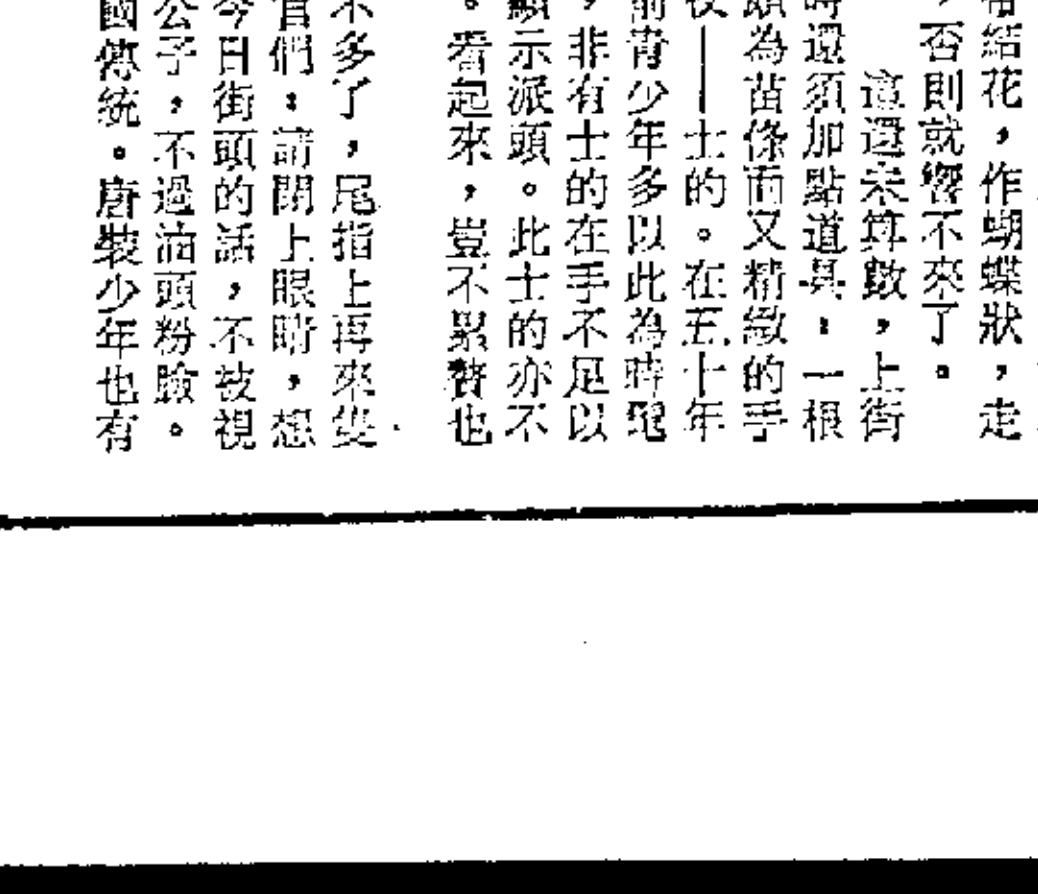 結花，作蝴蝶狀，走
，否則就響不來了。
這還未算數，上街
時還須加點道具：一根
頗為苗條而又精緻的手
杖——士的。在五十年
前青少年多以此為時髦
，非有士的在手不足以
顯示派頭。此士的亦不
。看起來，豈不累贅也
不多了，尾指上再來隻
官們：請閉上眼睛，想
今日街頭的話，不被視
公子，不過油頭粉臉。
國傳統。唐裝少年也有